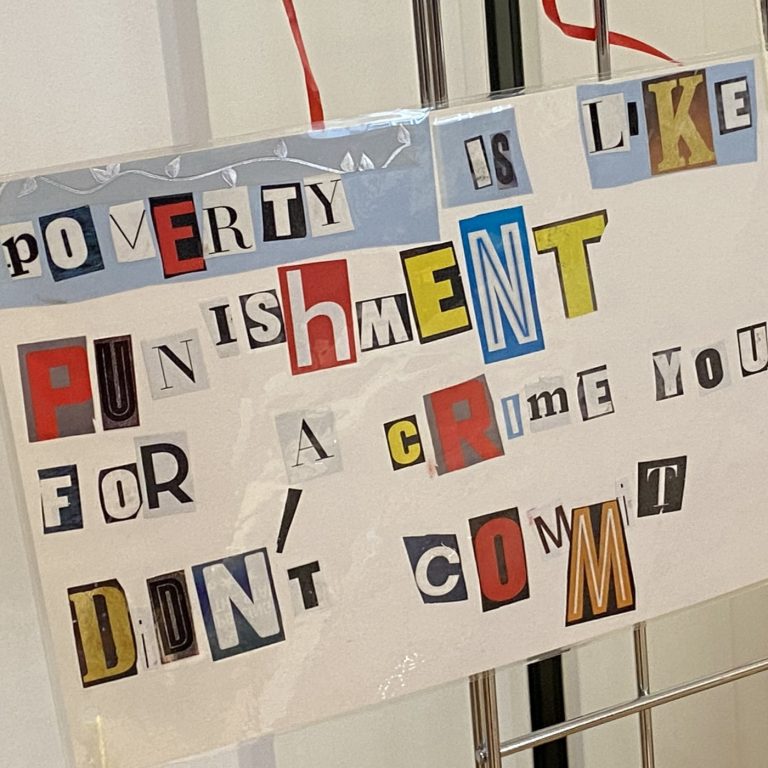 POVERTY IS LIKE
PUNIShMENT
FOR A CRImE YOU
DiDN'T COMMiT